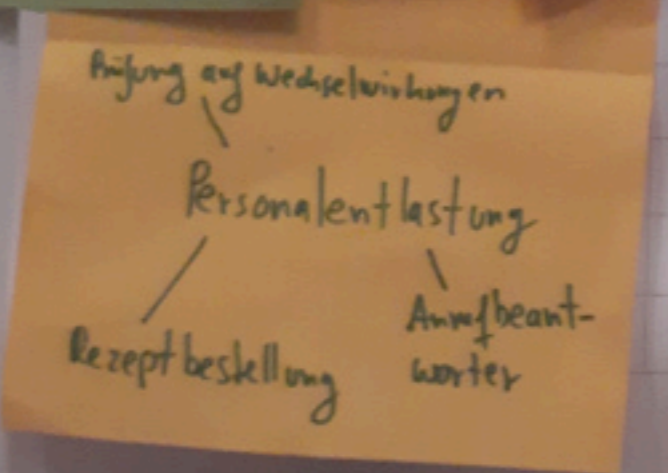 Prüfung auf Wechselwirkungen
Personalentlastung
Rezeptbestellung
Anrufbeant-
worter